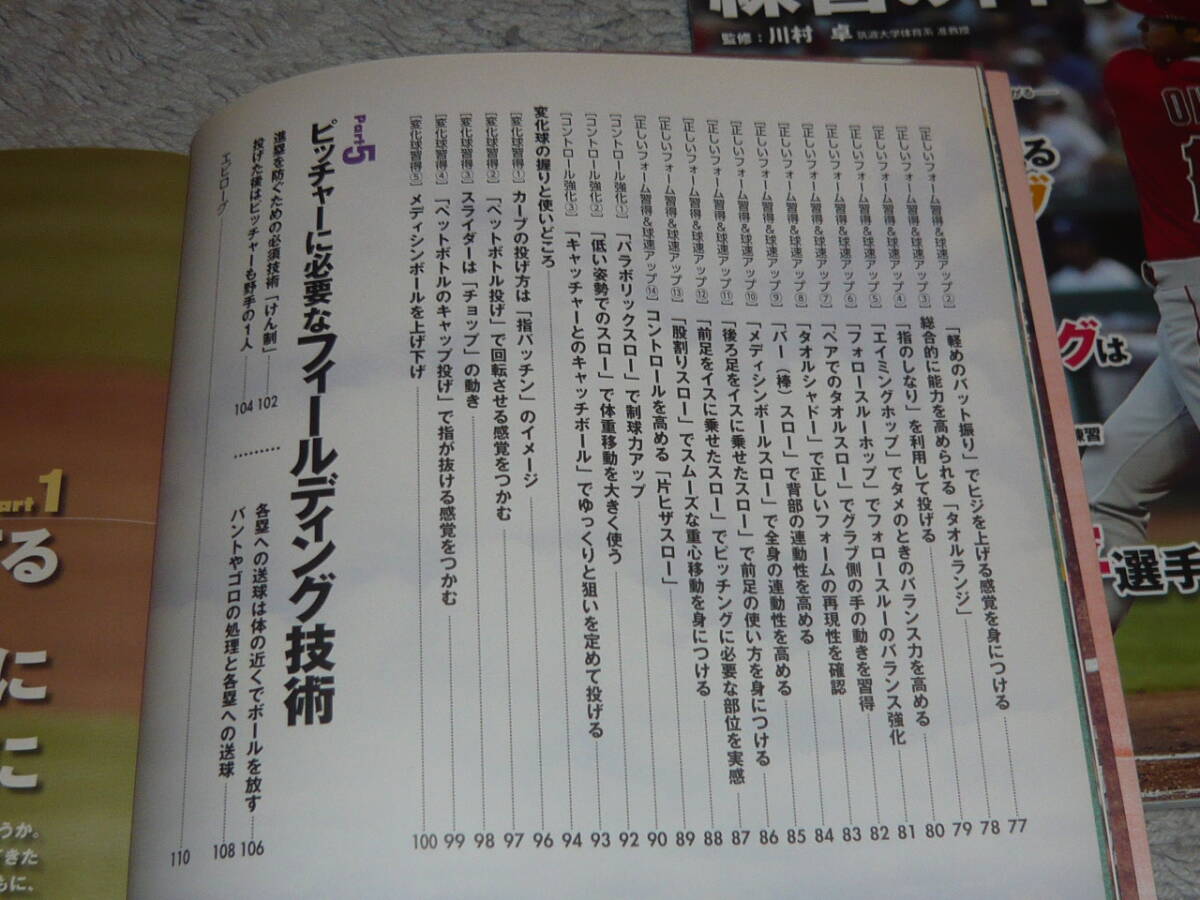 [正しいフォーム習得&球速アップ②] 「軽めのバット振り」でヒジを上げる感覚を身につける 77
[正しいフォーム習得&球速アップ③] 総合的に能力を高められる「タオルランジ」 78
[正しいフォーム習得&球速アップ④] 「指のしなり」を利用して投げる 79
[正しいフォーム習得&球速アップ⑤] 「エイミングホップ」でタメのときのバランス力を高める 80
[正しいフォーム習得&球速アップ⑥] 「フォロースルーホップ」でフォロースルーのバランス強化 81
[正しいフォーム習得&球速アップ⑦] 「ペアでのタオルスロー」でグラブ側の手の動きを習得 82
[正しいフォーム習得&球速アップ⑧] 「タオルシャドー」で正しいフォームの再現性を確認 83
[正しいフォーム習得&球速アップ⑨] 「バー（棒）スロー」で背部の連動性を高める 84
[正しいフォーム習得&球速アップ⑩] 「メディシンボールスロー」で全身の連動性を高める 85
[正しいフォーム習得&球速アップ⑪] 「後ろ足をイスに乗せたスロー」で前足の使い方を身につける 86
[正しいフォーム習得&球速アップ⑫] 「前足をイスに乗せたスロー」でピッチングに必要な部位を実感 87
[正しいフォーム習得&球速アップ⑬] 「股割りスロー」でスムーズな重心移動を身につける 88
[正しいフォーム習得&球速アップ⑭] コントロールを高める「片ヒザスロー」 89
[コントロール強化①] 「パラボリックスロー」で制球力アップ 90
[コントロール強化②] 「低い姿勢でのスロー」で体重移動を大きく使う 92
[コントロール強化③] 「キャッチャーとのキャッチボール」でゆっくりと狙いを定めて投げる 93
変化球の握りと使いどころ 94
[変化球習得①] カーブの投げ方は「指パッチン」のイメージ 96
[変化球習得②] 「ペットボトル投げ」で回転させる感覚をつかむ 97
[変化球習得③] スライダーは「チョップ」の動き 98
[変化球習得④] 「ペットボトルのキャップ投げ」で指が抜ける感覚をつかむ 99
[変化球習得⑤] メディシンボールを上げ下げ 100
Part5
ピッチャーに必要なフィールディング技術
進塁を防ぐための必須技術「けん制」 102
投げた後はピッチャーも野手の1人 104
各塁への送球は体の近くでボールを放す 106
バントやゴロの処理と各塁への送球 108
エピローグ 110
監修：川村 卓 筑波大学体育系 准教授
る
グは
練習
選手
art 1
る
に
こ
うか。
できた
もに、